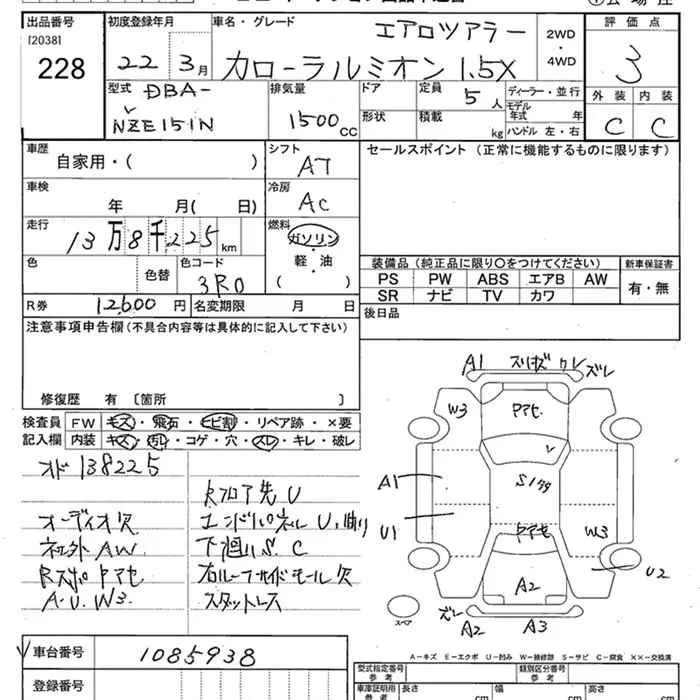 出品番号
[2038]
228
初度登録年月
22年3月
車名・グレード
エアロツアラー
カローラルミオン 1.5X
2WD
・
4WD
評価点
3
外装 内装
C C
型式
DBA-
NZE151N
排気量
1500cc
ドア
形状
定員 5人
積載 kg
ディーラー・並行
モデル年式 年
ハンドル 左・右
車歴
自家用・( )
車検
年 月( 日)
走行
13万8千225km
色
色替
色コード
3R0
シフト
AT
冷房
AC
燃料
ガソリン
・
軽・油
・
( )
R券 12,600円
名変期限 月 日
セールスポイント (正常に機能するものに限ります)
装備品 (純正品に限り○をつけてください)
PS PW ABS エアB AW
SR ナビ TV カワ
新車保証書
有・無
後日品
注意事項申告欄(不具合内容等は具体的に記入して下さい)
修復歴 有 〔箇所 〕
検査員 FW キズ・飛石・ヒビ割・リペア跡・×要
記入欄 内装 キズ・汚レ・コゲ・穴・スレ・キレ・破レ
オド138225
オーディオ欠
社外AW
A.U.W3
Rフロア先 U
下廻りS.C
スタットレス
A1 スリキズ ワレ ズレ
W3 アセ
A1 S1
U1 アセ W3
A2 U2
スペア
ズレ
A2 A3
A-キズ E-エクボ U-凹み W-補修跡 S-サビ C-腐食 ××-交換済
車台番号 1085938
登録番号
型式指定番号 参考
類別区分番号 参考
車庫証明用 参考
長さ cm
幅 cm
高さ cm